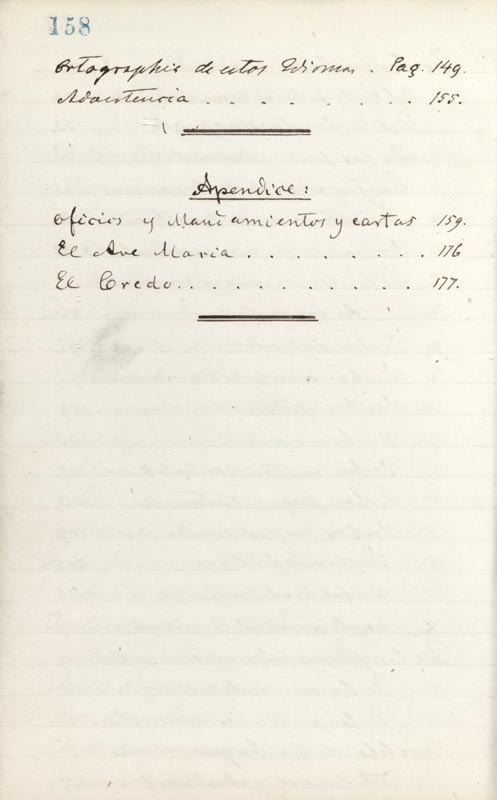 158
Ortographia de estos Idiomas. Pag. 149.
Advertencia . . . . . . . . 155.
Apendice:
Oficios y Mandamientos y cartas 159.
El Ave Maria . . . . . . . . 176
El Credo . . . . . . . . . . 177.